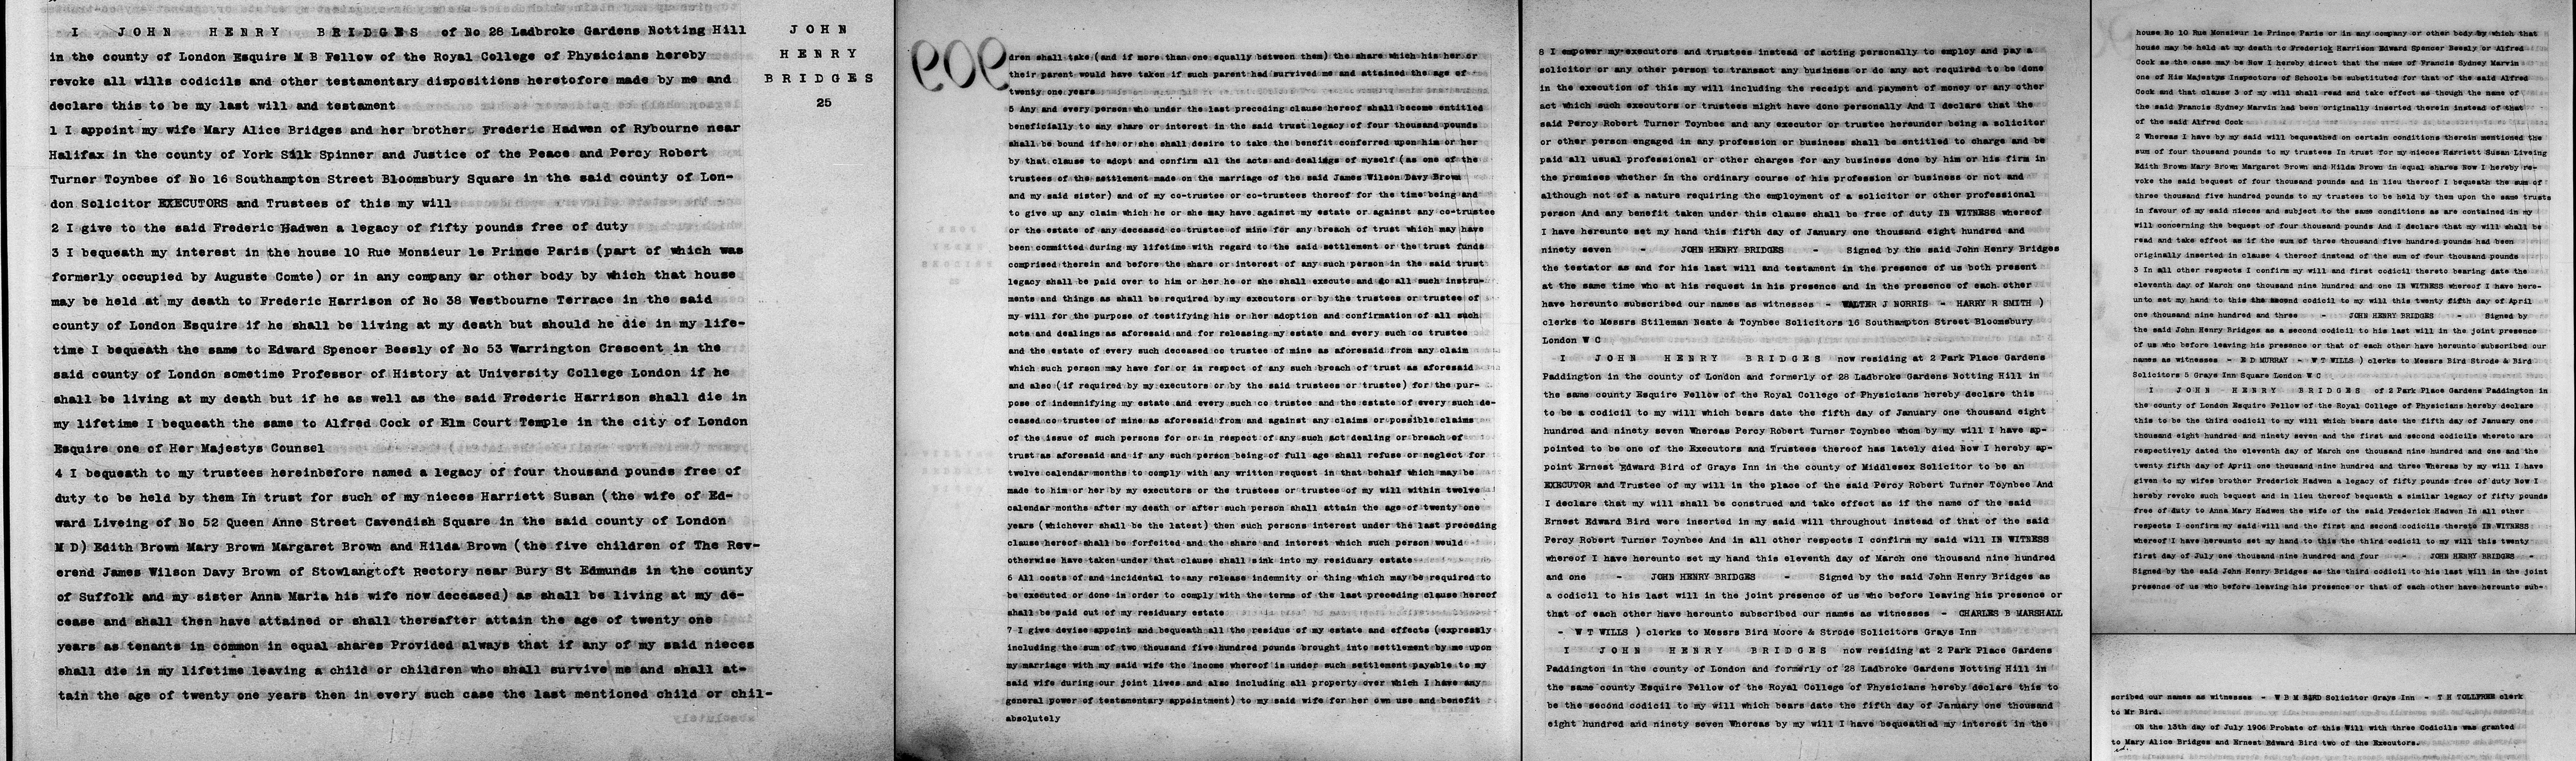 I JOHN HENRY BRIDGES of No 28 Ladbroke Gardens Notting Hill
in the county of London Esquire M B Fellow of the Royal College of Physicians hereby
revoke all wills codicils and other testamentary dispositions heretofore made by me and
declare this to be my last will and testament
JOHN
HENRY
BRIDGES
25
1 I appoint my wife Mary Alice Bridges and her brother Frederic Hadwen of Rybourne near
Halifax in the county of York Silk Spinner and Justice of the Peace and Percy Robert
Turner Toynbee of No 16 Southampton Street Bloomsbury Square in the said county of Lon-
don Solicitor EXECUTORS and Trustees of this my will
2 I give to the said Frederic Hadwen a legacy of fifty pounds free of duty
3 I bequeath my interest in the house 10 Rue Monsieur le Prince Paris (part of which was
formerly occupied by Auguste Comte) or in any company or other body by which that house
may be held at my death to Frederic Harrison of No 38 Westbourne Terrace in the said
county of London Esquire if he shall be living at my death but should he die in my life-
time I bequeath the same to Edward Spencer Beesly of No 53 Warrington Crescent in the
said county of London sometime Professor of History at University College London if he
shall be living at my death but if he as well as the said Frederic Harrison shall die in
my lifetime I bequeath the same to Alfred Cock of Elm Court Temple in the city of London
Esquire one of Her Majestys Counsel
4 I bequeath to my trustees hereinbefore named a legacy of four thousand pounds free of
duty to be held by them In trust for such of my nieces Harriett Susan (the wife of Ed-
ward Liveing of No 52 Queen Anne Street Cavendish Square in the said county of London
M D) Edith Brown Mary Brown Margaret Brown and Hilda Brown (the five children of The Rev-
erend James Wilson Davy Brown of Stowlangtoft Rectory near Bury St Edmunds in the county
of Suffolk and my sister Anna Maria his wife now deceased) as shall be living at my de-
cease and shall then have attained or shall thereafter attain the age of twenty one
years as tenants in common in equal shares Provided always that if any of my said nieces
shall die in my lifetime leaving a child or children who shall survive me and shall at-
tain the age of twenty one years then in every such case the last mentioned child or chil-
909
dren shall take (and if more than one equally between them) the share which his her or
their parent would have taken if such parent had survived me and attained the age of
twenty one years
5 Any and every person who under the last preceding clause hereof shall become entitled
beneficially to any share or interest in the said trust legacy of four thousand pounds
shall be bound if he or she shall desire to take the benefit conferred upon him or her
by that clause to adopt and confirm all the acts and dealings of myself (as one of the
trustees of the settlement made on the marriage of the said James Wilson Davy Brown
and my said sister) and of my co-trustee or co-trustees thereof for the time being and
to give up any claim which he or she may have against my estate or against any co-trustee
or the estate of any deceased co trustee of mine for any breach of trust which may have
been committed during my lifetime with regard to the said settlement or the trust funds
comprised therein and before the share or interest of any such person in the said trust
legacy shall be paid over to him or her he or she shall execute and do all such instru-
ments and things as shall be required by my executors or by the trustees or trustee of
my will for the purpose of testifying his or her adoption and confirmation of all such
acts and dealings as aforesaid and for releasing my estate and every such co trustee
and the estate of every such deceased co trustee of mine as aforesaid from any claim
which such person may have for or in respect of any such breach of trust as aforesaid
and also (if required by my executors or by the said trustees or trustee) for the pur-
pose of indemnifying my estate and every such co trustee and the estate of every such de-
ceased co trustee of mine as aforesaid from and against any claims or possible claims
of the issue of such persons for or in respect of any such act dealing or breach of
trust as aforesaid and if any such person being of full age shall refuse or neglect for
twelve calendar months to comply with any written request in that behalf which may be
made to him or her by my executors or the trustees or trustee of my will within twelve
calendar months after my death or after such person shall attain the age of twenty one
years (whichever shall be the latest) then such persons interest under the last preceding
clause hereof shall be forfeited and the share and interest which such person would
otherwise have taken under that clause shall sink into my residuary estate
6 All costs of and incidental to any release indemnity or thing which may be required to
be executed or done in order to comply with the terms of the last preceding clause hereof
shall be paid out of my residuary estate
7 I give devise appoint and bequeath all the residue of my estate and effects (expressly
including the sum of two thousand five hundred pounds brought into settlement by me upon
my marriage with my said wife the income whereof is under such settlement payable to my
said wife during our joint lives and also including all property over which I have any
general power of testamentary appointment) to my said wife for her own use and benefit
absolutely
8 I empower my executors and trustees instead of acting personally to employ and pay a
solicitor or any other person to transact any business or do any act required to be done
in the execution of this my will including the receipt and payment of money or any other
act which such executors or trustees might have done personally And I declare that the
said Percy Robert Turner Toynbee and any executor or trustee hereunder being a solicitor
or other person engaged in any profession or business shall be entitled to charge and be
paid all usual professional or other charges for any business done by him or his firm in
the premises whether in the ordinary course of his profession or business or not and
although not of a nature requiring the employment of a solicitor or other professional
person And any benefit taken under this clause shall be free of duty IN WITNESS whereof
I have hereunto set my hand this fifth day of January one thousand eight hundred and
ninety seven - JOHN HENRY BRIDGES - Signed by the said John Henry Bridges
the testator as and for his last will and testament in the presence of us both present
at the same time who at his request in his presence and in the presence of each other
have hereunto subscribed our names as witnesses - WALTER J NORRIS - HARRY R SMITH )
clerks to Messrs Stileman Neate & Toynbee Solicitors 16 Southampton Street Bloomsbury
London W C
I JOHN HENRY BRIDGES now residing at 2 Park Place Gardens
Paddington in the county of London and formerly of 28 Ladbroke Gardens Notting Hill in
the same county Esquire Fellow of the Royal College of Physicians hereby declare this
to be a codicil to my will which bears date the fifth day of January one thousand eight
hundred and ninety seven Whereas Percy Robert Turner Toynbee whom by my will I have ap-
pointed to be one of the Executors and Trustees thereof has lately died Now I hereby ap-
point Ernest Edward Bird of Grays Inn in the county of Middlesex Solicitor to be an
EXECUTOR and Trustee of my will in the place of the said Percy Robert Turner Toynbee And
I declare that my will shall be construed and take effect as if the name of the said
Ernest Edward Bird were inserted in my said will throughout instead of that of the said
Percy Robert Turner Toynbee And in all other respects I confirm my said will IN WITNESS
whereof I have hereunto set my hand this eleventh day of March one thousand nine hundred
and one - JOHN HENRY BRIDGES - Signed by the said John Henry Bridges as
a codicil to his last will in the joint presence of us who before leaving his presence or
that of each other have hereunto subscribed our names as witnesses - CHARLES B MARSHALL
- W T WILLS ) clerks to Messrs Bird Moore & Strode Solicitors Grays Inn
I JOHN HENRY BRIDGES now residing at 2 Park Place Gardens
Paddington in the county of London and formerly of 28 Ladbroke Gardens Notting Hill in
the same county Esquire Fellow of the Royal College of Physicians hereby declare this to
be the second codicil to my will which bears date the fifth day of January one thousand
eight hundred and ninety seven Whereas by my will I have bequeathed my interest in the
house No 10 Rue Monsieur le Prince Paris or in any company or other body by which that
house may be held at my death to Frederick Harrison Edward Spencer Beesly or Alfred
Cock as the case may be Now I hereby direct that the name of Francis Sydney Marvin
one of His Majestys Inspectors of Schools be substituted for that of the said Alfred
Cock and that clause 3 of my will shall read and take effect as though the name of
the said Francis Sydney Marvin had been originally inserted therein instead of that
of the said Alfred Cock
2 Whereas I have by my said will bequeathed on certain conditions therein mentioned the
sum of four thousand pounds to my trustees In trust for my nieces Harriett Susan Liveing
Edith Brown Mary Brown Margaret Brown and Hilda Brown in equal shares Now I hereby re-
voke the said bequest of four thousand pounds and in lieu thereof I bequeath the sum of
three thousand five hundred pounds to my trustees to be held by them upon the same trusts
in favour of my said nieces and subject to the same conditions as are contained in my
will concerning the bequest of four thousand pounds And I declare that my will shall be
read and take effect as if the sum of three thousand five hundred pounds had been
originally inserted in clause 4 thereof instead of the sum of four thousand pounds
3 In all other respects I confirm my will and first codicil thereto bearing date the
eleventh day of March one thousand nine hundred and one IN WITNESS whereof I have here-
unto set my hand to this the second codicil to my will this twenty fifth day of April
one thousand nine hundred and three - JOHN HENRY BRIDGES - Signed by
the said John Henry Bridges as a second codicil to his last will in the joint presence
of us who before leaving his presence or that of each other have hereunto subscribed our
names as witnesses - E D MURRAY - W T WILLS ) clerks to Messrs Bird Strode & Bird
Solicitors 5 Grays Inn Square London W C
I JOHN HENRY BRIDGES of 2 Park Place Gardens Paddington in
the county of London Esquire Fellow of the Royal College of Physicians hereby declare
this to be the third codicil to my will which bears date the fifth day of January one
thousand eight hundred and ninety seven and the first and second codicils whereto are
respectively dated the eleventh day of March one thousand nine hundred and one and the
twenty fifth day of April one thousand nine hundred and three Whereas by my will I have
given to my wifes brother Frederick Hadwen a legacy of fifty pounds free of duty Now I
hereby revoke such bequest and in lieu thereof bequeath a similar legacy of fifty pounds
free of duty to Anna Mary Hadwen the wife of the said Frederick Hadwen In all other
respects I confirm my said will and the first and second codicils thereto IN WITNESS
whereof I have hereunto set my hand to this the third codicil to my will this twenty
first day of July one thousand nine hundred and four - JOHN HENRY BRIDGES -
Signed by the said John Henry Bridges as the third codicil to his last will in the joint
presence of us who before leaving his presence or that of each other have hereunto sub-
scribed our names as witnesses - W B M BIRD Solicitor Grays Inn - T H TOLLFREE clerk
to Mr Bird.
ON the 13th day of July 1906 Probate of this Will with three Codicils was granted
to Mary Alice Bridges and Ernest Edward Bird two of the Executors.